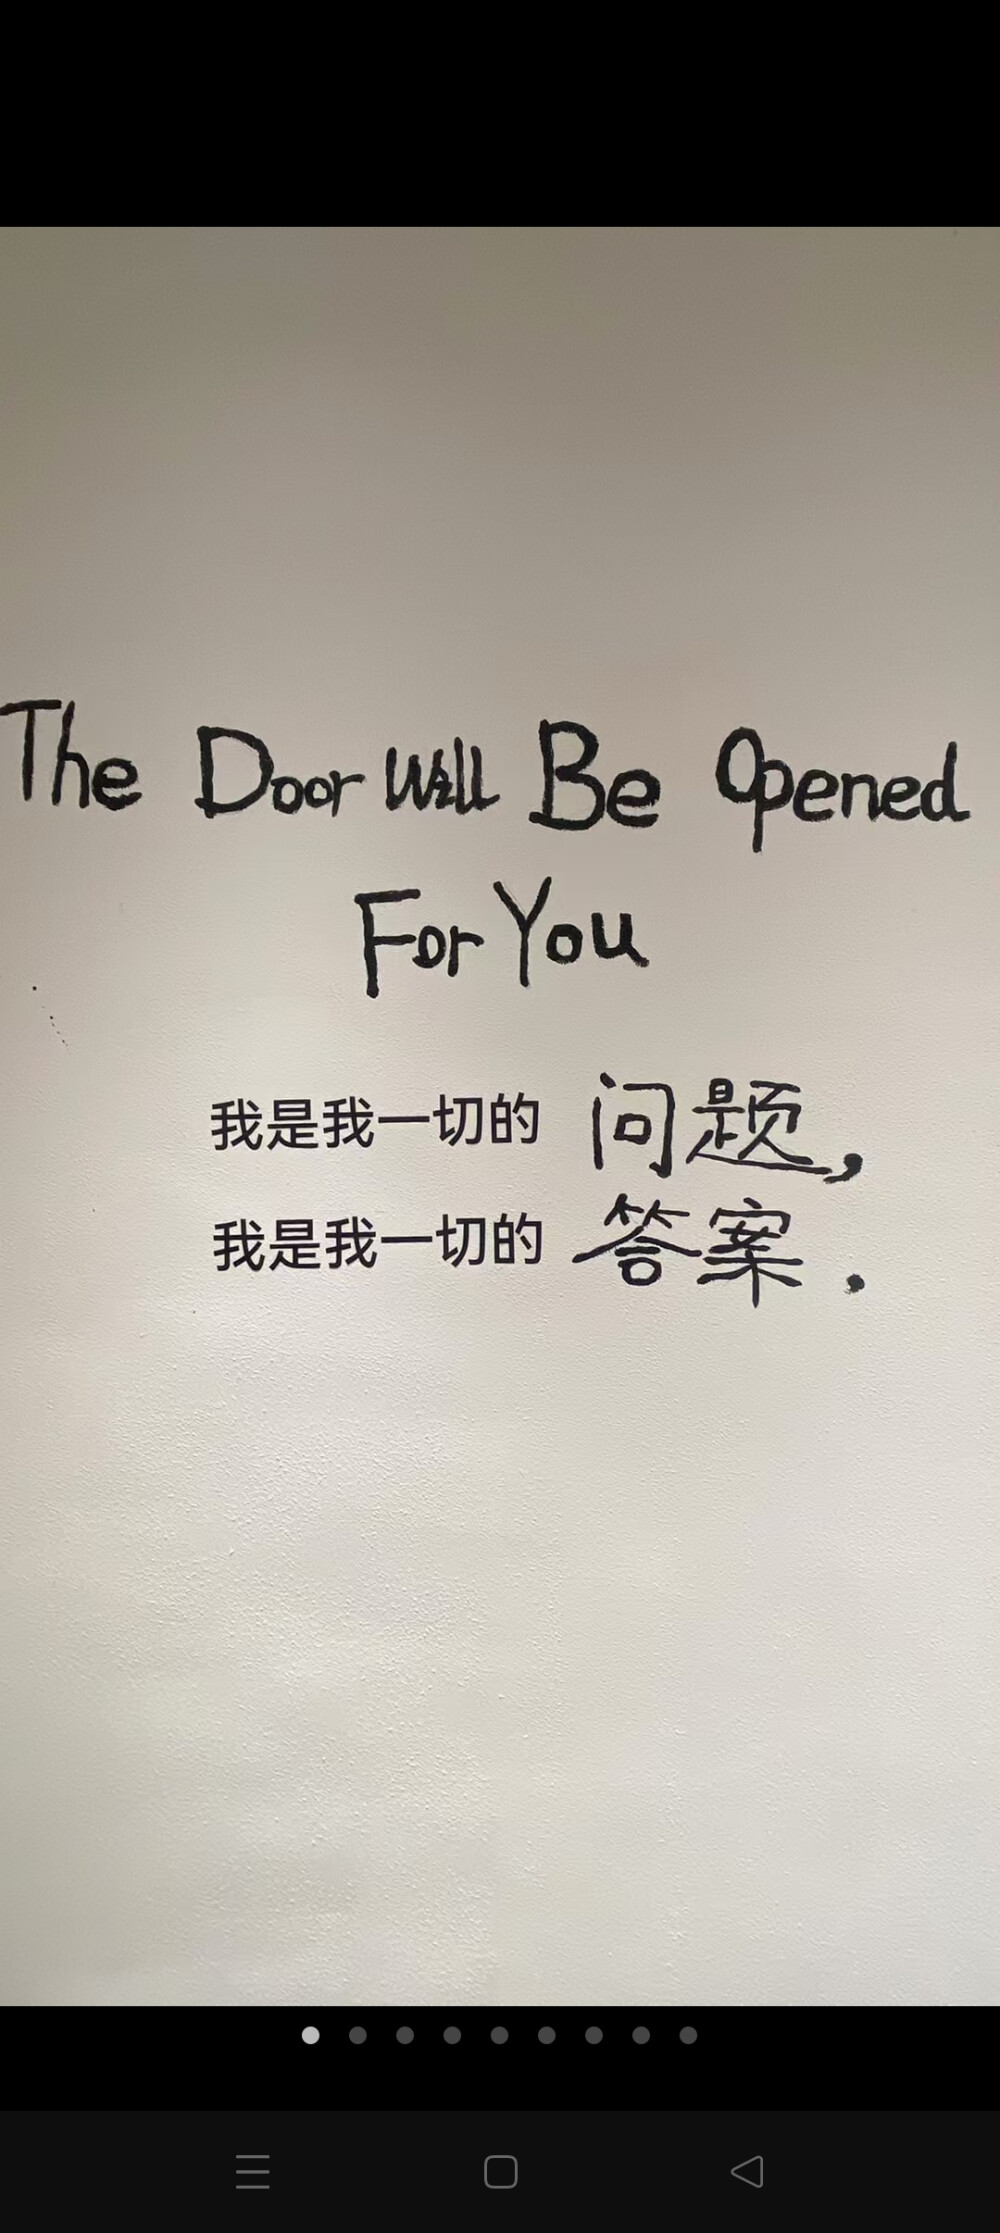 The Door Will Be Opened
For You
我是我一切的 问题，
我是我一切的 答案.